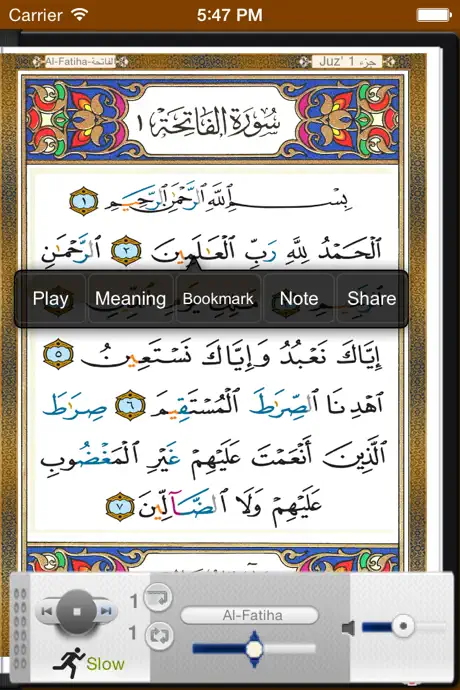 Carrier 5:47 PM
Al-Fatiha-الفاتحة Juz' 1 جزء
سُورَةُ الفَاتِحَةِ ١
بِسْمِ ٱللَّهِ ٱلرَّحْمَٰنِ ٱلرَّحِيمِ ١
ٱلْحَمْدُ لِلَّهِ رَبِّ ٱلْعَٰلَمِينَ ٢ ٱلرَّحْمَٰنِ
Play Meaning Bookmark Note Share
إِيَّاكَ نَعْبُدُ وَإِيَّاكَ نَسْتَعِينُ ٥
ٱهْدِنَا ٱلصِّرَٰطَ ٱلْمُسْتَقِيمَ ٦ صِرَٰطَ
ٱلَّذِينَ أَنْعَمْتَ عَلَيْهِمْ غَيْرِ ٱلْمَغْضُوبِ
عَلَيْهِمْ وَلَا ٱلضَّآلِّينَ ٧
1
Al-Fatiha
1
Slow